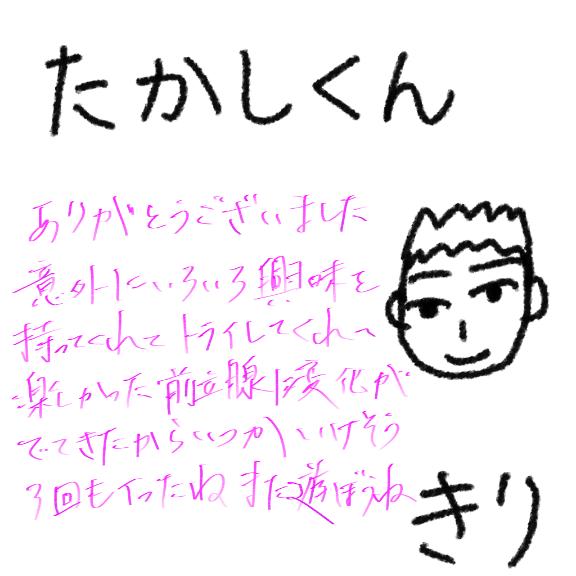 たかしくん
ありがとうございました
意外にいろいろ興味を
持ってくれてトライしてくれて
楽しかった前立腺に変化が
でてきたからいつかいけそう
3回もイったねまた遊ぼうね
きり